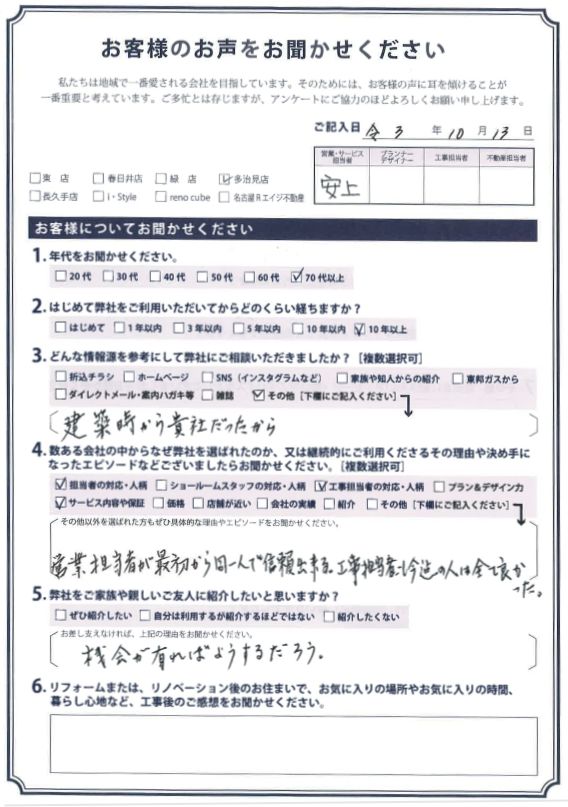 お客様のお声をお聞かせください
私たちは地域で一番愛される会社を目指しています。そのためには、お客様の声に耳を傾けることが
一番重要と考えています。ご多忙とは存じますが、アンケートにご協力のほどよろしくお願い申し上げます。
ご記入日 令3 年 10 月 13 日
営業・サービス担当者 プランナーデザイナー 工事担当者 不動産担当者
安上
□東 店 □春日井店 □緑 店 ☑多治見店
□長久手店 □i・Style □reno cube □名古屋Rエイジ不動産
お客様についてお聞かせください
1. 年代をお聞かせください。
□20代 □30代 □40代 □50代 □60代 ☑70代以上
2. はじめて弊社をご利用いただいてからどのくらい経ちますか？
□はじめて □1年以内 □3年以内 □5年以内 □10年以内 ☑10年以上
3. どんな情報源を参考にして弊社にご相談いただきましたか？［複数選択可］
□折込チラシ □ホームページ □SNS（インスタグラムなど） □家族や知人からの紹介 □東邦ガスから
□ダイレクトメール・案内ハガキ等 □雑誌 ☑その他［下欄にご記入ください］
建築時から貴社だったから
4. 数ある会社の中からなぜ弊社を選ばれたのか、又は継続的にご利用くださるその理由や決め手に
なったエピソードなどございましたらお聞かせください。［複数選択可］
☑担当者の対応・人柄 □ショールームスタッフの対応・人柄 ☑工事担当者の対応・人柄 □プラン＆デザイン力
☑サービス内容や保証 □価格 □店舗が近い □会社の実績 □紹介 □その他［下欄にご記入ください］
その他以外を選ばれた方もぜひ具体的な理由やエピソードをお聞かせください。
営業担当者が最初から同一人で信頼出来る。工事担当者も今迄の人は全て良かった。
5. 弊社をご家族や親しいご友人に紹介したいと思いますか？
□ぜひ紹介したい □自分は利用するが紹介するほどではない □紹介したくない
お差し支えなければ、上記の理由をお聞かせください。
機会が有ればようするだろう。
6. リフォームまたは、リノベーション後のお住まいで、お気に入りの場所やお気に入りの時間、
暮らし心地など、工事後のご感想をお聞かせください。